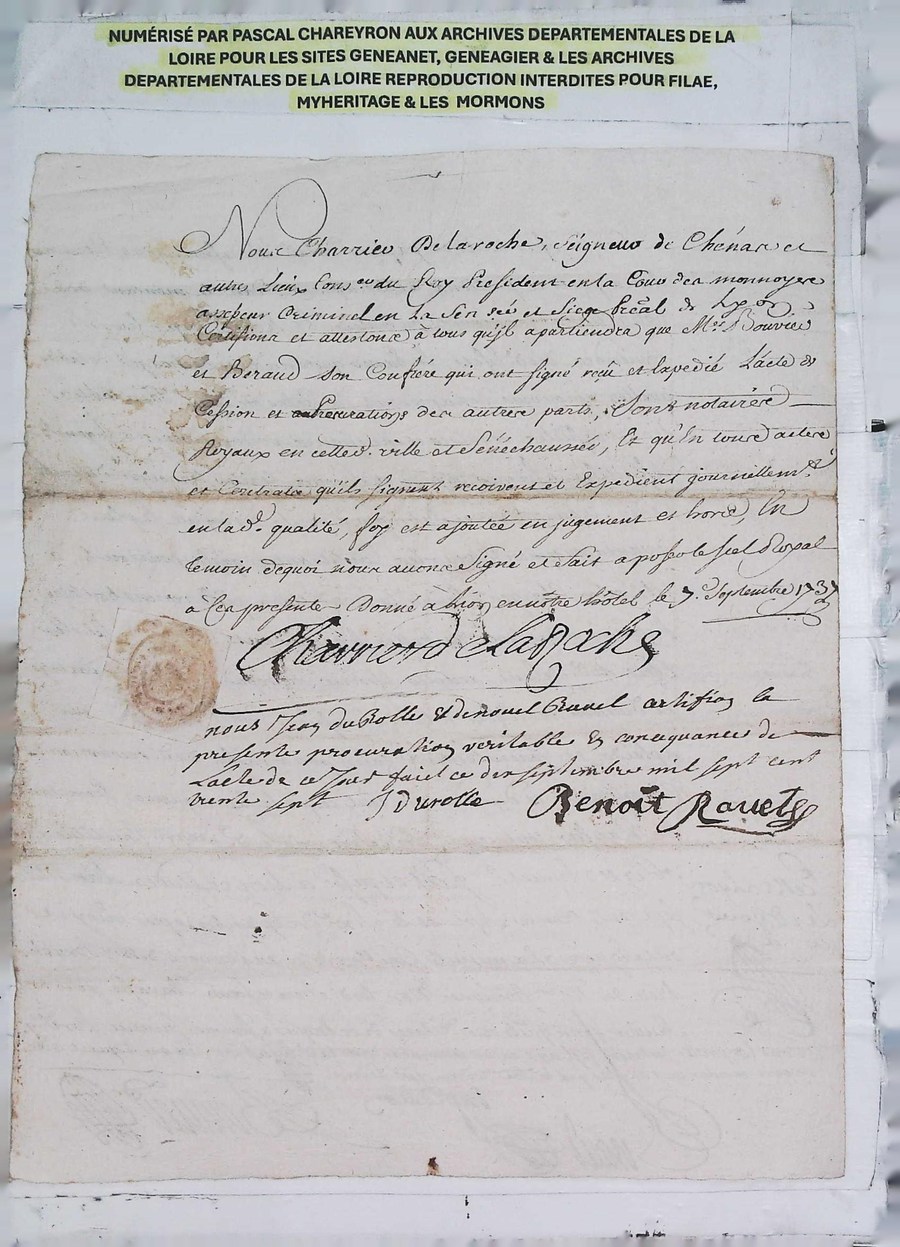 NUMÉRISÉ PAR PASCAL CHAREYRON AUX ARCHIVES DEPARTEMENTALES DE LA
LOIRE POUR LES SITES GENEANET, GENEAGIER & LES ARCHIVES
DEPARTEMENTALES DE LA LOIRE REPRODUCTION INTERDITES POUR FILAE,
MYHERITAGE & LES MORMONS
Nous Charrier Delaroche, Seigneur de Chénas et
autres Lieux Cons.er du Roy President en la Cour des monnoyes
Criminel en La Sen sée et Siege de Lyon
Certifions et attestons à tous qu'jl apartiendra que M.rs Bouvier
et Beraud son Confrère qui ont signé reçu et Expedié L'acte de
Cession et procurations des autres parts, Sont notaires
Royaux en cette d. ville et Sénéchaussée, Et qu'En tous actes
et Contrats qu'ils signent recoivent et Expedient journellem.t
en lad.e qualité, foy est ajoutée en jugement et hors, En
temoin dequoi nous avons Signé et fait aposer le scel Royal
à Ces presente Donné à Lion en nôtre hôtel le 7.e Septembre 1737
Charrier De La Roche
nous Jean duRolle & Ravel certifions la
presente procuration veritable & consequance de
Lacte de ce Jour faict ce septembre mil sept cent
trente sept J durolle Benoît Ravel